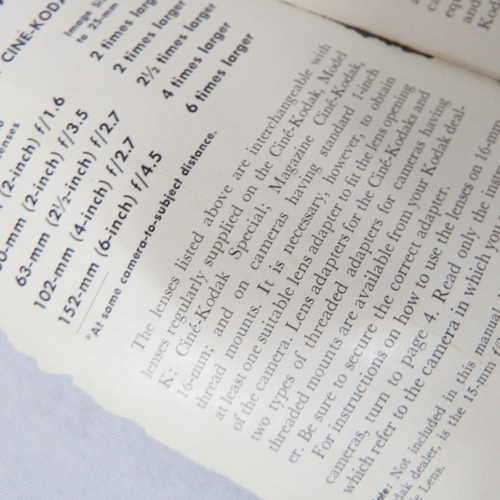 CINÉ-KODA
Image Si
to 25-mm
2 times larger
2 times larger
2½ times larger
4 times larger
6 times larger
enses
(2-inch) f/1.6
-mm (2-inch) f/3.5
63-mm (2½-inch) f/2.7
102-mm (4-inch) f/2.7
152-mm (6-inch) f/4.5
*At same camera-to-subject distance.
The lenses listed above are interchangeable with
lenses regularly supplied on the Ciné-Kodak, Model
K; Ciné-Kodak Special; Magazine Ciné-Kodak,
16-mm; and on cameras having standard 1-inch
thread mounts. It is necessary, however, to obtain
at least one suitable lens adapter to fit the lens opening
of the camera. Lens adapters for the Ciné-Kodaks and
two types of threaded adapters for cameras having
threaded mounts are available from your Kodak deal-
er. Be sure to secure the correct adapter.
For instructions on how to use the lenses on 16-m
cameras, turn to page 4. Read only the in
which refer to the camera in which yo
: Not included in this manual,
k dealer, is the 15-mm
Lens.